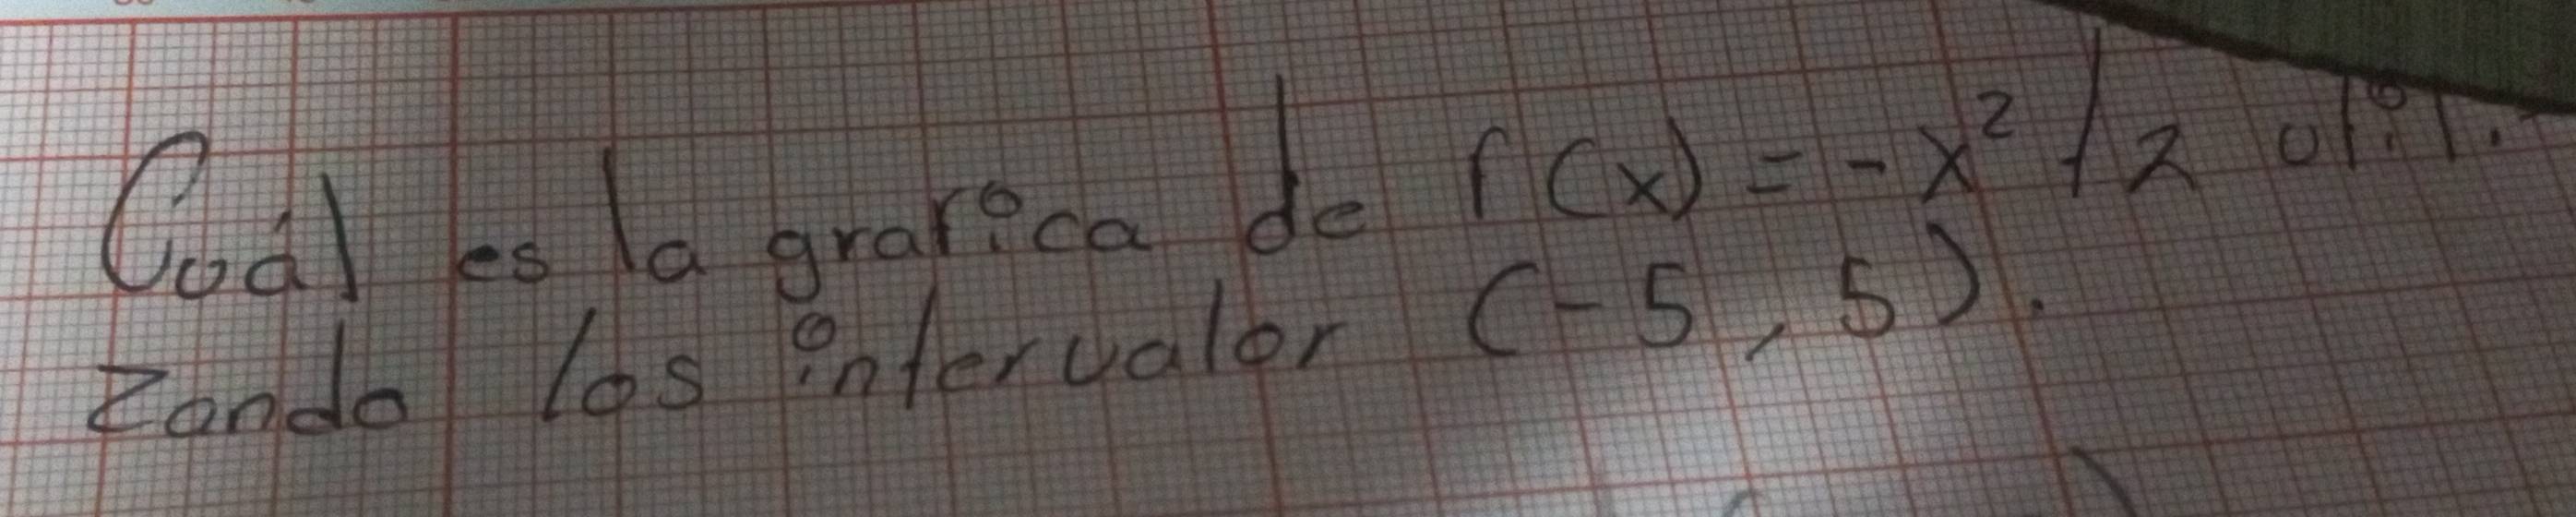 Cuál es la grafica de f(x) = -x² / 2 utili-
zando los intervalor (-5, 5).